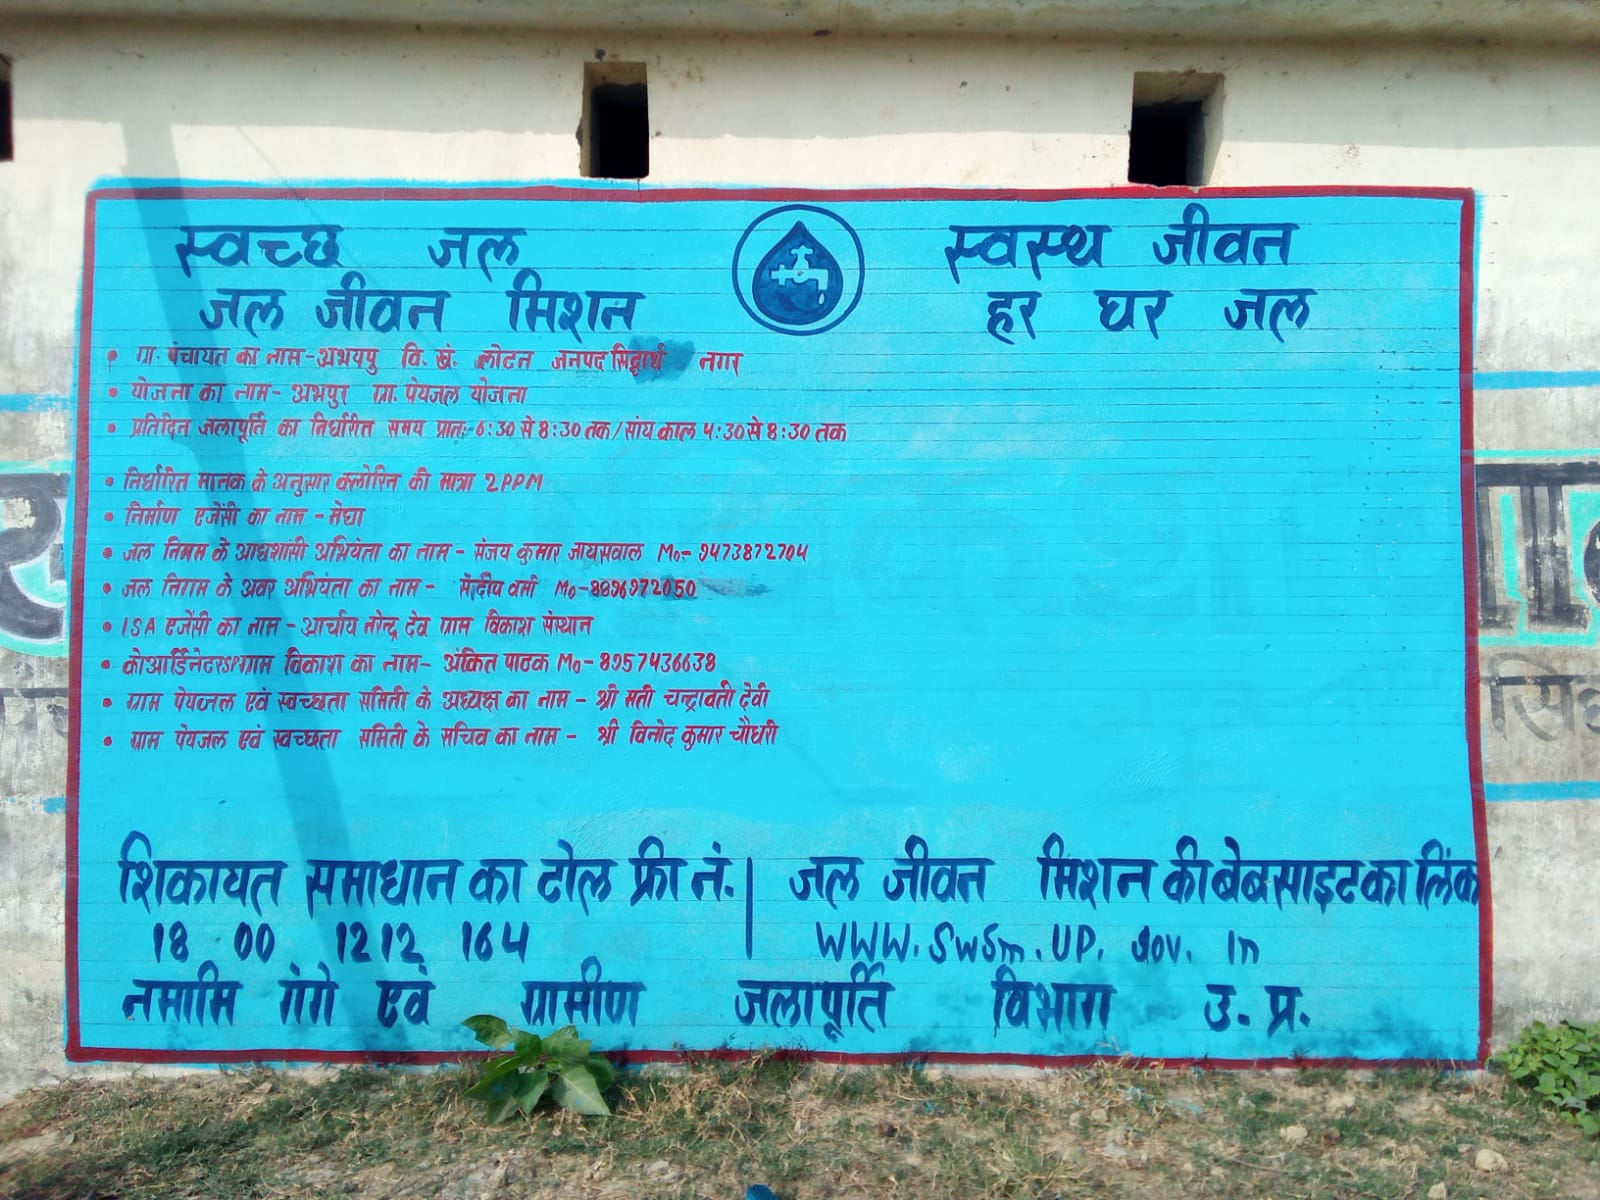 स्वच्छ जल स्वस्थ जीवन
जल जीवन मिशन हर घर जल
• ग्रा. पंचायत का नाम - अभयपु वि. खं. लोटन जनपद सिद्धार्थ नगर
• योजना का नाम - अभपुर ग्रा. पेयजल योजना
• प्रतिदिन जलापूर्ति का निर्धारित समय प्रातः 6:30 से 8:30 तक / सांय काल 4:30 से 8:30 तक
• निर्धारित मानक के अनुसार क्लोरिन की मात्रा 2 PPM
• निर्माण एजेंसी का नाम - मेघा
• जल निगम के अभियंता का नाम - संजय कुमार जायसवाल Mo- 9473872704
• जल निगम के अवर अभियंता का नाम - संदीप वर्मा Mo- 8896972050
• ISA एजेंसी का नाम - आर्चाय नरेन्द्र देव ग्राम विकाश संस्थान
• कोआर्डिनेटर SP ग्राम विकाश का नाम - अंकित पाठक Mo- 8957436638
• ग्राम पेयजल एवं स्वच्छता समिती के अध्यक्ष का नाम - श्री मती चन्द्रावती देवी
• ग्राम पेयजल एवं स्वच्छता समिती के सचिव का नाम - श्री विनोद कुमार चौधरी
शिकायत समाधान का टोल फ्री नं. | जल जीवन मिशन की बेबसाइट का लिंक
18 00 1212 164 WWW. SwSm. UP. gov. in
नमामि गंगे एवं ग्रामीण जलापूर्ति विभाग उ. प्र.